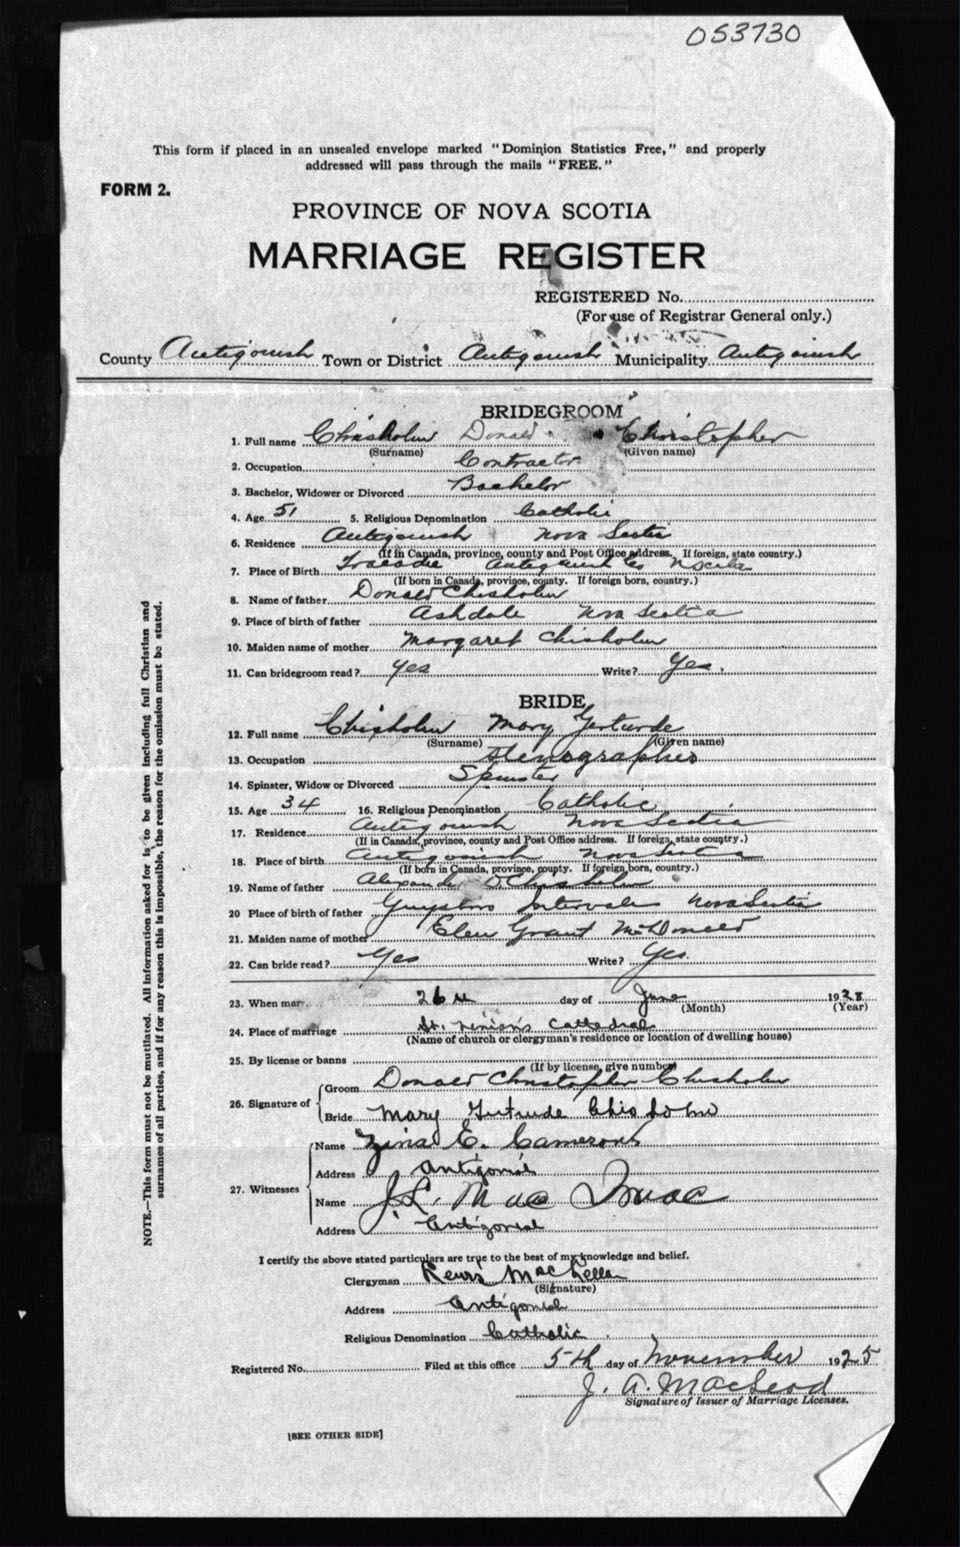 053730
This form if placed in an unsealed envelope marked "Dominion Statistics Free," and properly
addressed will pass through the mails "FREE."
FORM 2.
PROVINCE OF NOVA SCOTIA
MARRIAGE REGISTER
REGISTERED No.
(For use of Registrar General only.)
County Antigonish Town or District Antigonish Municipality Antigonish
BRIDEGROOM
1. Full name Chisholm Donald Christopher
(Surname) (Given name)
2. Occupation Contractor
3. Bachelor, Widower or Divorced Bachelor
4. Age 51 5. Religious Denomination Catholic
6. Residence Antigonish Nova Scotia
(If in Canada, province, county and Post Office address. If foreign, state country.)
7. Place of Birth Tracadie Antigonish Co N Scotia
(If born in Canada, province, county. If foreign born, country.)
8. Name of father Donald Chisholm
9. Place of birth of father Ashdale Nova Scotia
10. Maiden name of mother Margaret Chisholm
11. Can bridegroom read? Yes Write? Yes.
BRIDE
12. Full name Chisholm Mary Gertrude
(Surname) (Given name)
13. Occupation Stenographer
14. Spinster, Widow or Divorced Spinster
15. Age 34 16. Religious Denomination Catholic
17. Residence Antigonish Nova Scotia
(If in Canada, province, county and Post Office address. If foreign, state country.)
18. Place of birth Antigonish Nova Scotia
(If born in Canada, province, county. If foreign born, country.)
19. Name of father Alexander D. Chisholm
20 Place of birth of father Guysboro Intervale Nova Scotia
21. Maiden name of mother Elen Grant McDonald
22. Can bride read? Yes Write? Yes.
23. When mar 26th day of June 192
(Month) (Year)
24. Place of marriage St. Ninian's Cathedral
(Name of church or clergyman's residence or location of dwelling house)
25. By license or banns
(If by license, give number)
26. Signature of
Groom Donald Christopher Chisholm
Bride Mary Gertrude Chisholm
27. Witnesses
Name E. Cameron
Address Antigonish
Name J. L. Mac Isaac
Address Antigonish
I certify the above stated particulars are true to the best of my knowledge and belief.
Clergyman MacLellan
(Signature)
Address Antigonish
Religious Denomination Catholic
Registered No. Filed at this office 5th day of November 1925
J. A. MacLeod
Signature of Issuer of Marriage Licenses.
[SEE OTHER SIDE]
NOTE.—This form must not be mutilated. All information asked for is to be given including full Christian and
surnames of all parties, and if for any reason this is impossible, the reason for the omission must be stated.